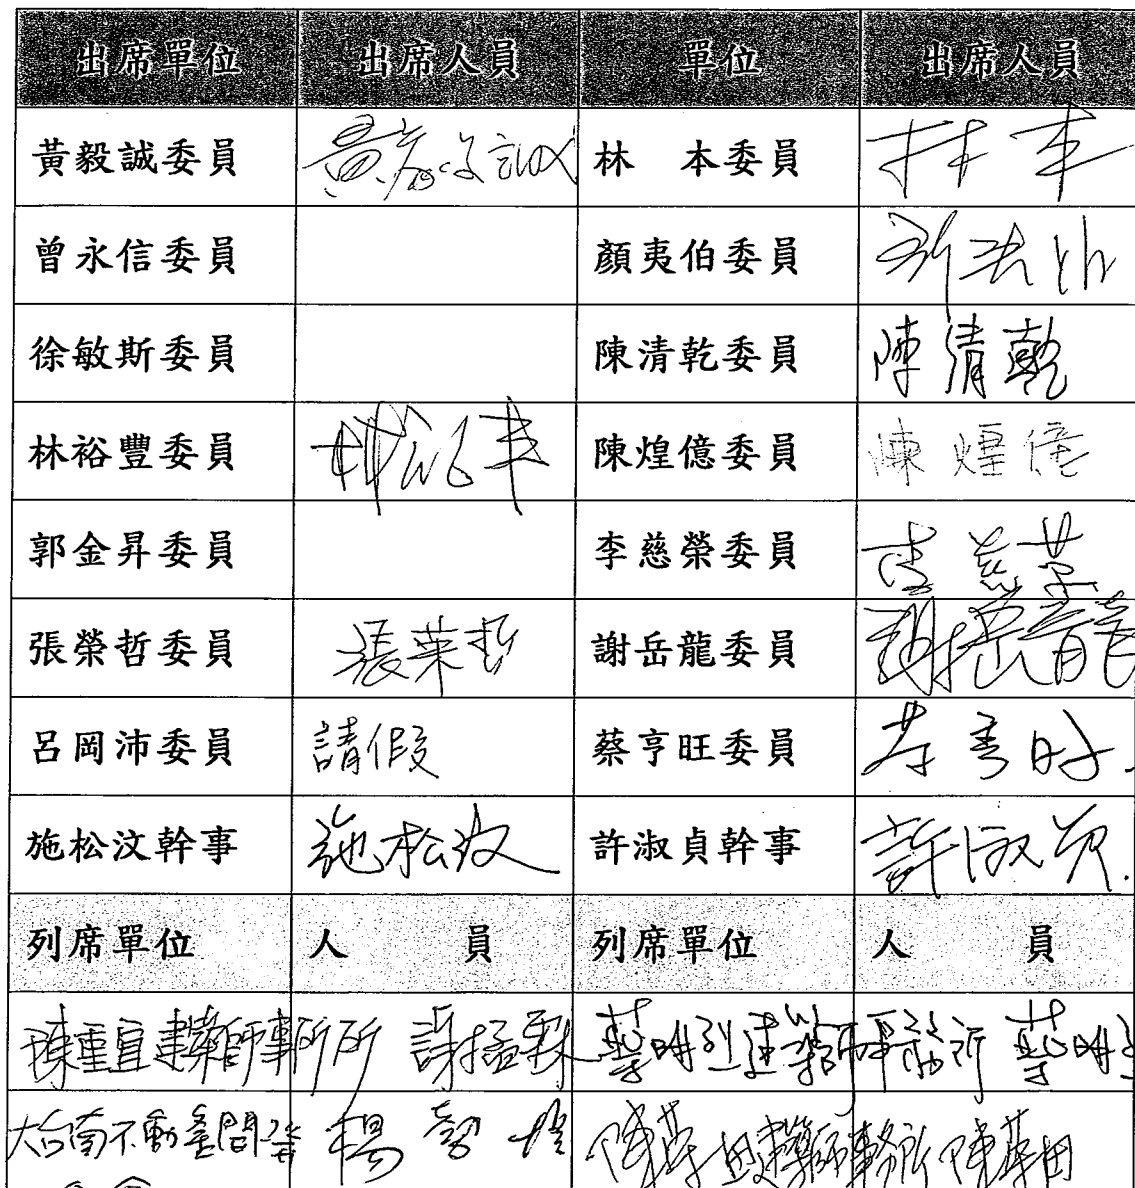 出席單位 出席人員 單位 出席人員
黃毅誠委員 黃毅誠 林 本委員 林本
曾永信委員 顏夷伯委員
徐敏斯委員 陳清乾委員 陳清乾
林裕豐委員 林裕丰 陳煌億委員 陳煌億
郭金昇委員 李慈榮委員 李慈荣
張榮哲委員 張荣哲 謝岳龍委員 謝岳龍
呂岡沛委員 請假 蔡亨旺委員 蔡亨旺
施松汶幹事 施松汶 許淑貞幹事 許淑貞
列席單位 人 員 列席單位 人 員
陳重宜建築師事所所 建築師事務所
大台南不動產開發 楊 建築師事務所